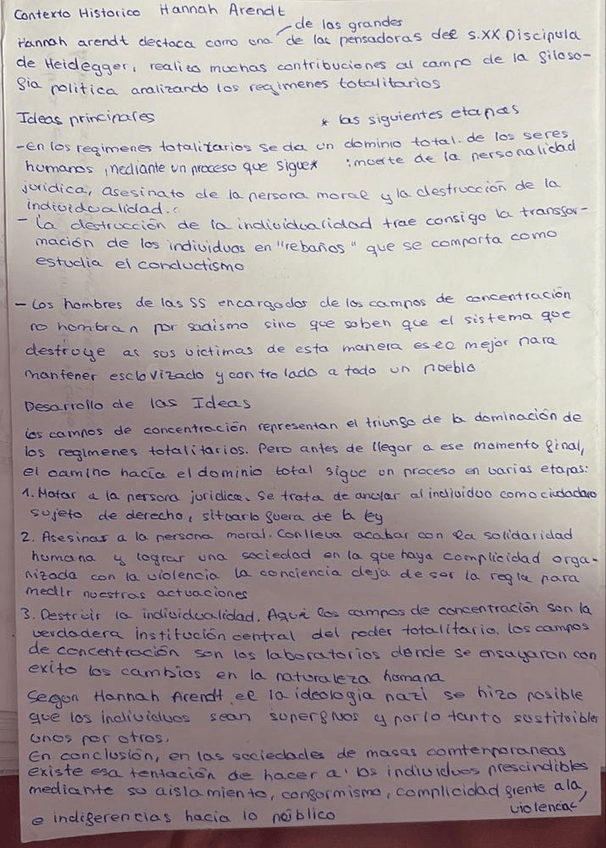 Contexto Historico Hannah Arendt
de las grandes
Hannah arendt destaca como una de las pensadoras del s.XX Discipula
de Heidegger, realizo muchas contribuciones al campo de la filoso-
fia politica analizando los regimenes totalitarios
Ideas principales
* las siguientes etapas
-En los regimenes totalitarios se da un dominio total de los seres
humanos, mediante un proceso que sigue* :muerte de la personalidad
juridica, asesinato de la persona moral y la destrucción de la
individualidad.
- La destrucción de la individualidad trae consigo la transfor-
mación de los individuos en "rebaños" que se comporta como
estudia el conductismo
- Los hombres de las SS encargados de los campos de concentración
no nombran por sadismo sino que saben que el sistema que
destruye as sus victimas de esta manera es el mejor para
mantener esclavizado y controlado a todo un pueblo
Desarrollo de las Ideas
Los campos de concentración representan el triunfo de la dominación de
los regimenes totalitarios. Pero antes de llegar a ese momento final,
el camino hacia el dominio total sigue un proceso en varias etapas:
1. Matar a la persona juridica. Se trata de anular al individuo como ciudadano
sujeto de derecho, situarlo fuera de la ley
2. Asesinar a la persona moral. Conlleva acabar con la solidaridad
humana y lograr una sociedad en la que haya complicidad orga-
nizada con la violencia la conciencia deja de ser la regla para
medir nuestras actuaciones
3. Destruir la individualidad. Aqui los campos de concentración son la
verdadera institución central del poder totalitario. los campos
de concentración son los laboratorios donde se ensayaron con
exito los cambios en la naturaleza humana
Segun Hannah Arendt el la ideologia nazi se hizo posible
que los individuos sean superfluos y por lo tanto sustituibles
unos por otros.
En conclusión, en las sociedades de masas comtemporaneas
existe esa tentación de hacer a los individuos prescindibles
mediante su aislamiento, conformismo, complicidad frente a la
violencia,
e indiferencias hacia lo público